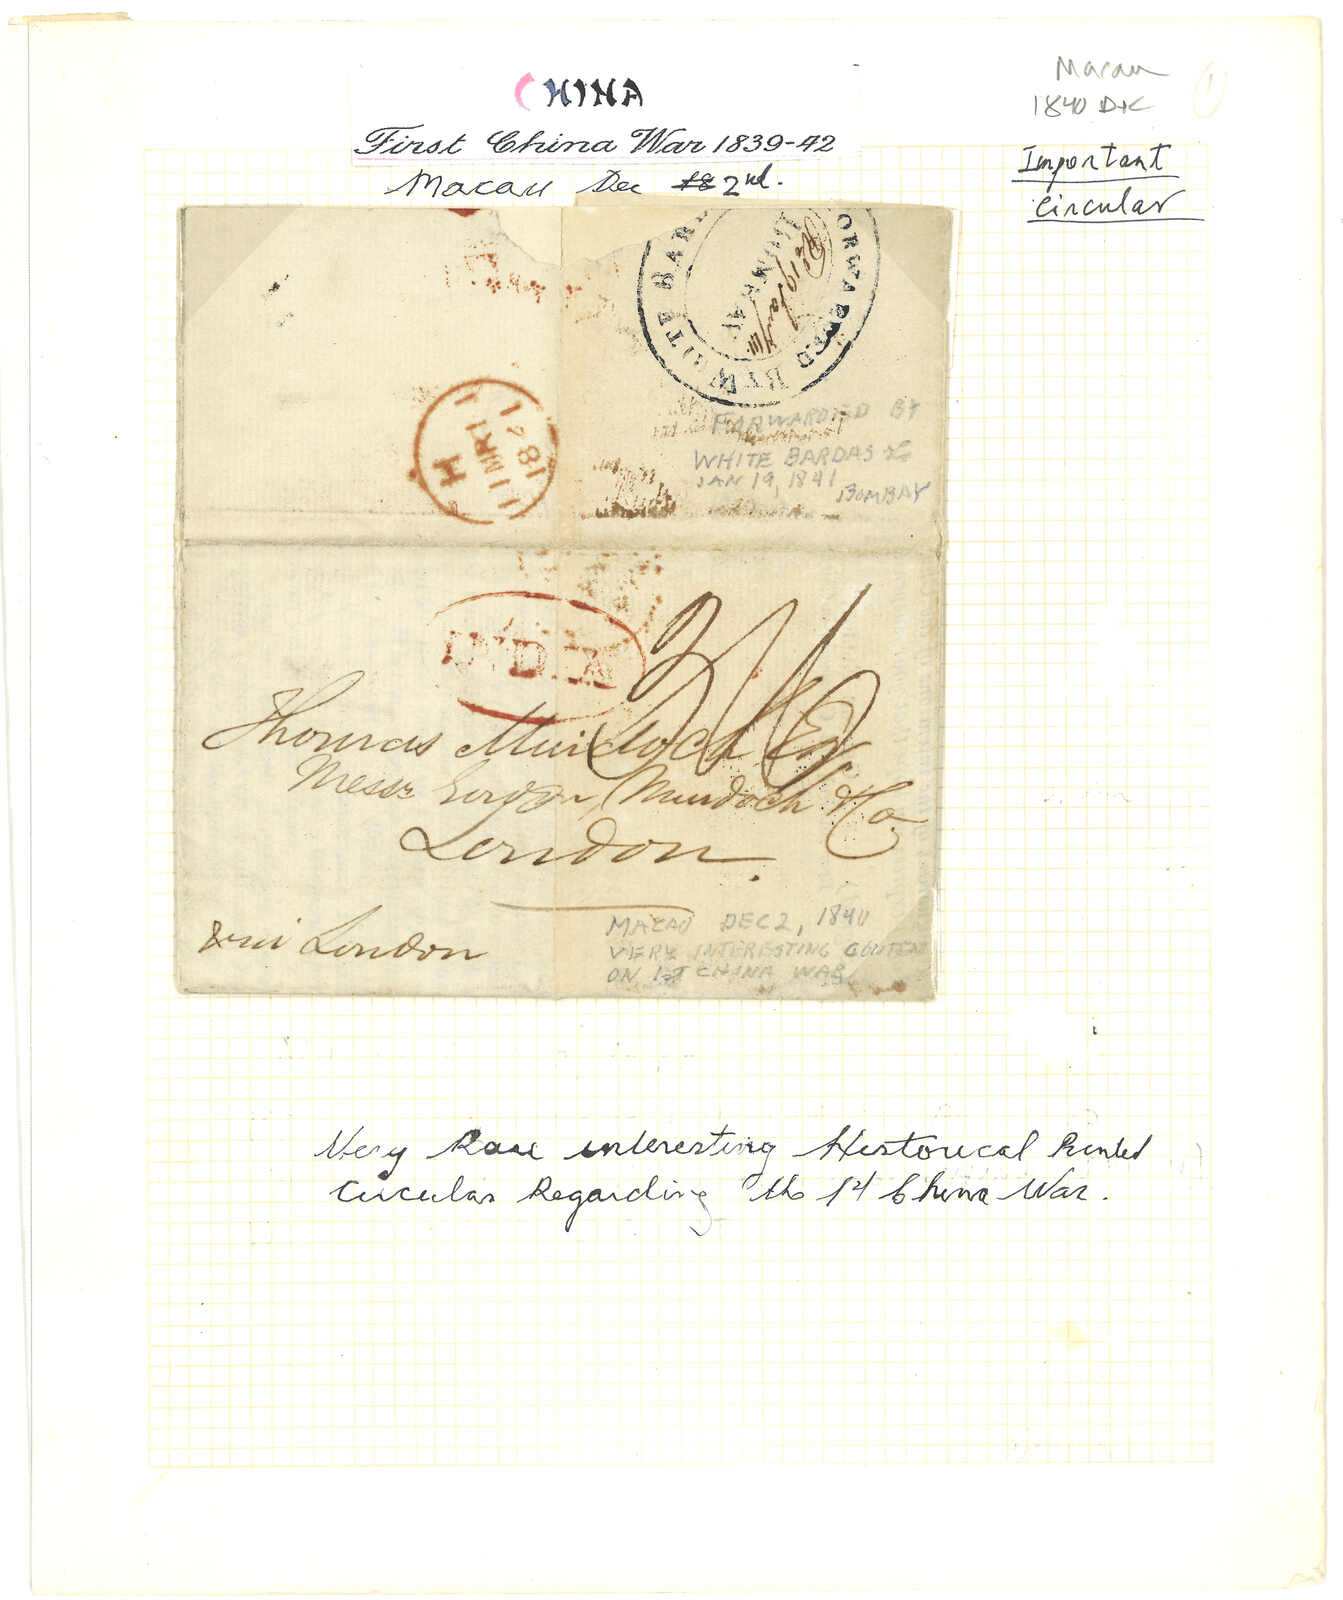 CHINA
First China War 1839-42
Macau Dec 2nd.
Macau
1840 Dec
1
Important
Circular
FORWARDED BY WHITE BARD
BOMBAY
Rd 19 Jany
H
11 MR 11
1841
FORWARDED BY
WHITE BARDAS &
JAN 19, 1841
BOMBAY
INDIA
Thomas Murdoch Esq
Messr Murdoch & Co
London
London
MACAO DEC 2, 1840
VERY INTERESTING CONTEN
ON 1ST CHINA WAR
Very Rare interesting Historical Printed
Circular Regarding the 1st China War.